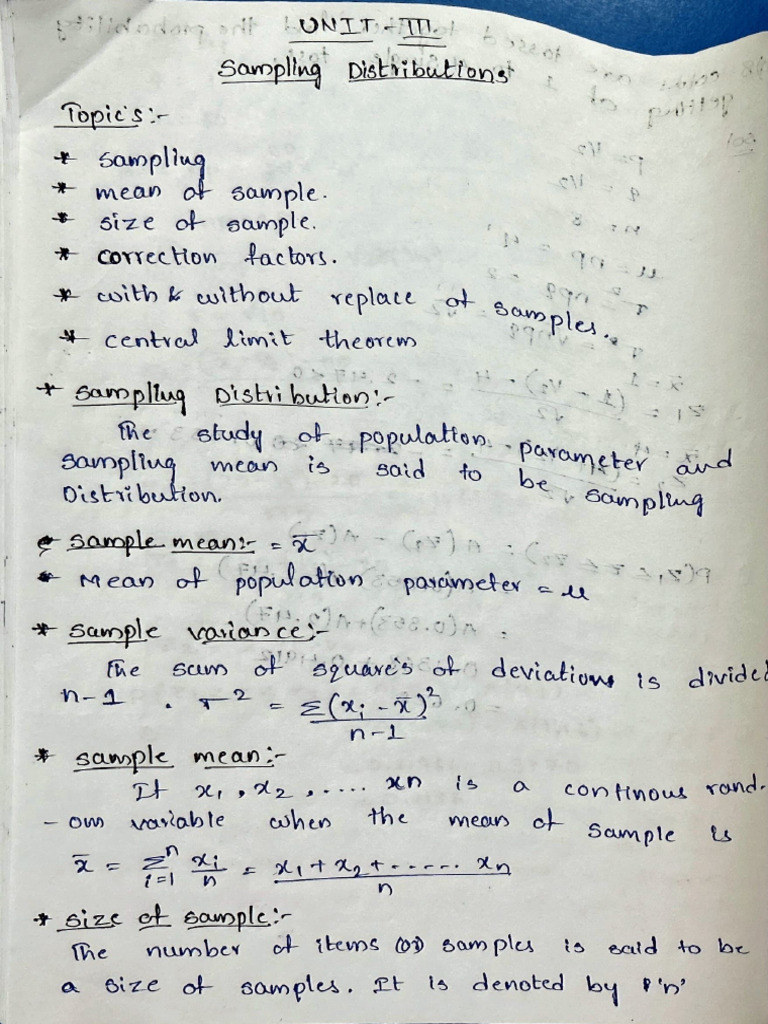 UNIT - III
Sampling Distributions
Topic's :-
* sampling
* mean of sample.
* size of sample.
* correction factors.
* with & without replace of samples.
* central limit theorem
* Sampling Distribution :-
The study of population parameter and
sampling mean is said to be sampling
Distribution.
* sample mean :- = x̄
* Mean of population parameter = μ
* sample variance :-
The sum of square's of deviations is divided
n-1 . σ² = Σ(xi - x̄)² / n-1
* sample mean :-
If x₁, x₂, ..... xn is a continous rand-
- om variable when the mean of sample is
x̄ = Σⁿi=1 xi/n = x₁ + x₂ + ...... xn / n
* size of sample :-
The number of items (or) samples is said to be
a size of samples. It is denoted by 'n'